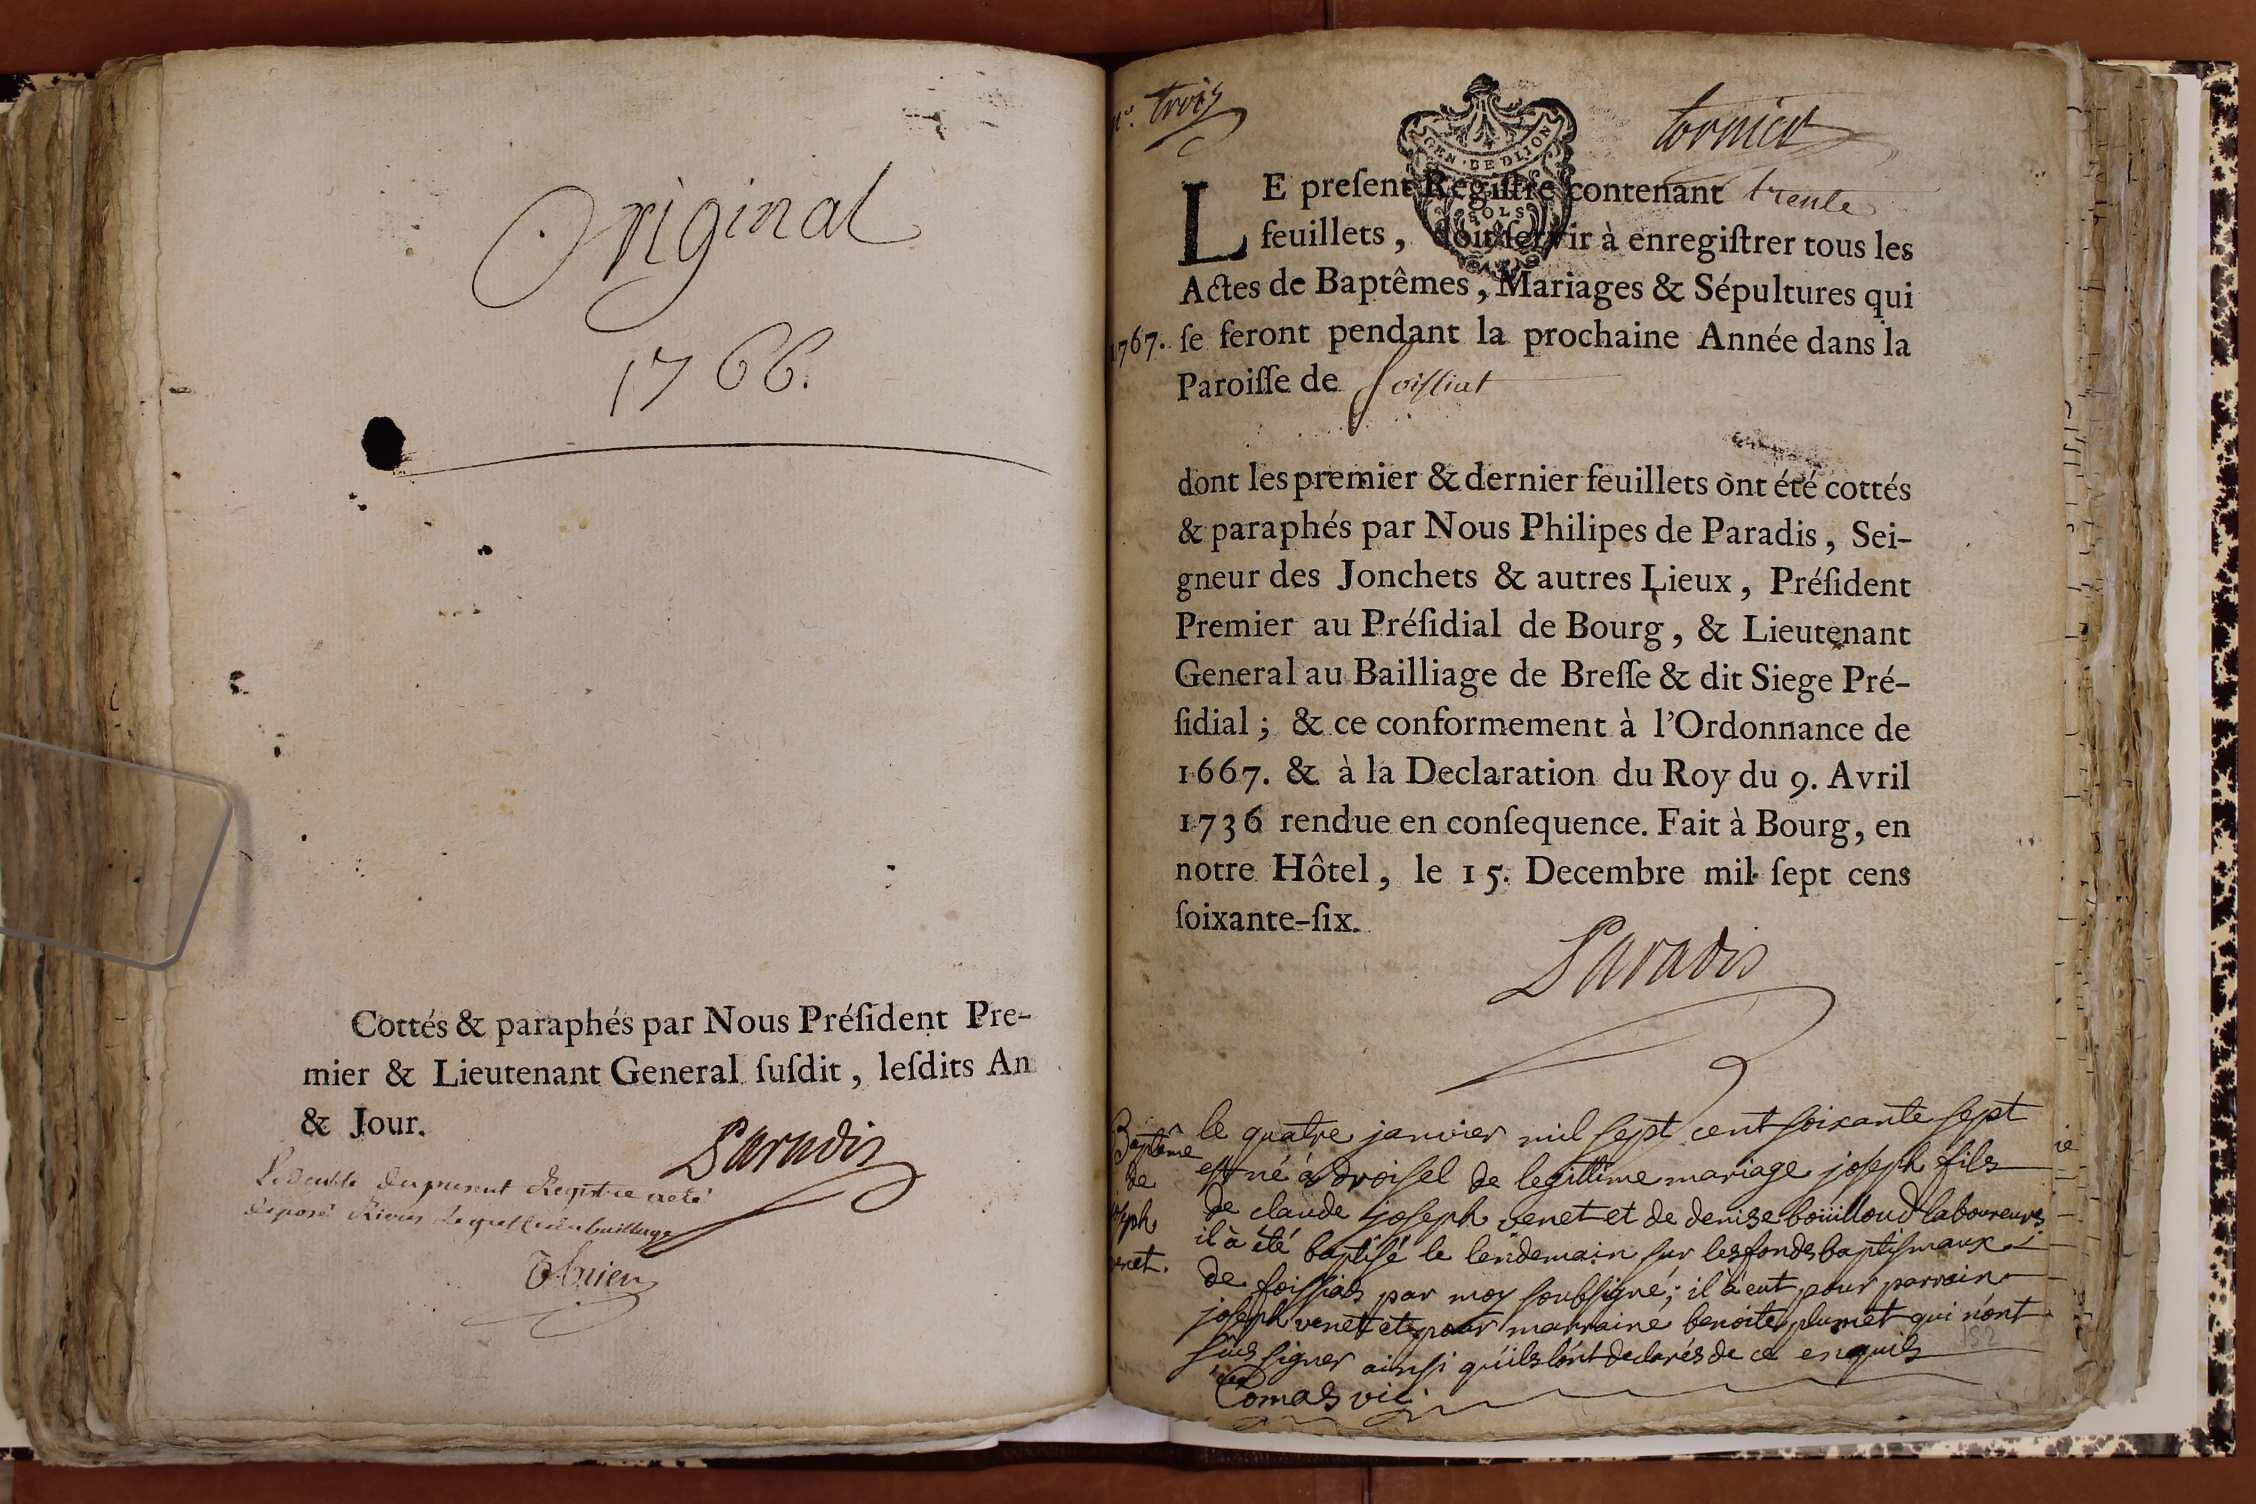 Original
1766.
Cottés & paraphés par Nous Préſident Pre-
mier & Lieutenant General ſuſdit, leſdits An
& Jour.
Paradis
Le double du present Registre a eté
deposé Riere le greffe du bailliage
n°. trois
GEN. DE DIJON
SOLS
LE preſent Regiſtre contenant trente
feuillets, doit ſervir à enregiſtrer tous les
Actes de Baptêmes, Mariages & Sépultures qui
1767. ſe feront pendant la prochaine Année dans la
Paroiſſe de foissiat
dont les premier & dernier feuillets ont été cottés
& paraphés par Nous Philipes de Paradis, Sei-
gneur des Jonchets & autres Lieux, Préſident
Premier au Préſidial de Bourg, & Lieutenant
General au Bailliage de Breſſe & dit Siege Pré-
ſidial; & ce conformement à l'Ordonnance de
1667. & à la Declaration du Roy du 9. Avril
1736 rendue en conſequence. Fait à Bourg, en
notre Hôtel, le 15. Decembre mil ſept cens
ſoixante-ſix.
Paradis
Baptême
de
joseph
venet.
le quatre janvier mil sept cent soixante sept
est né à droisel de legittime mariage joseph fils
de claude joseph venet et de denise boüilloud laboureurs
il à été baptisé le lendemain sur les fonds baptismaux
de foissias par moy soubsigné; il à eut pour parrain
joseph venet et pour marraine benoite plumet qui n'ont
sçus signer ainsi qu'ils l'ont declarés de ce enquis
Comas vic.
182